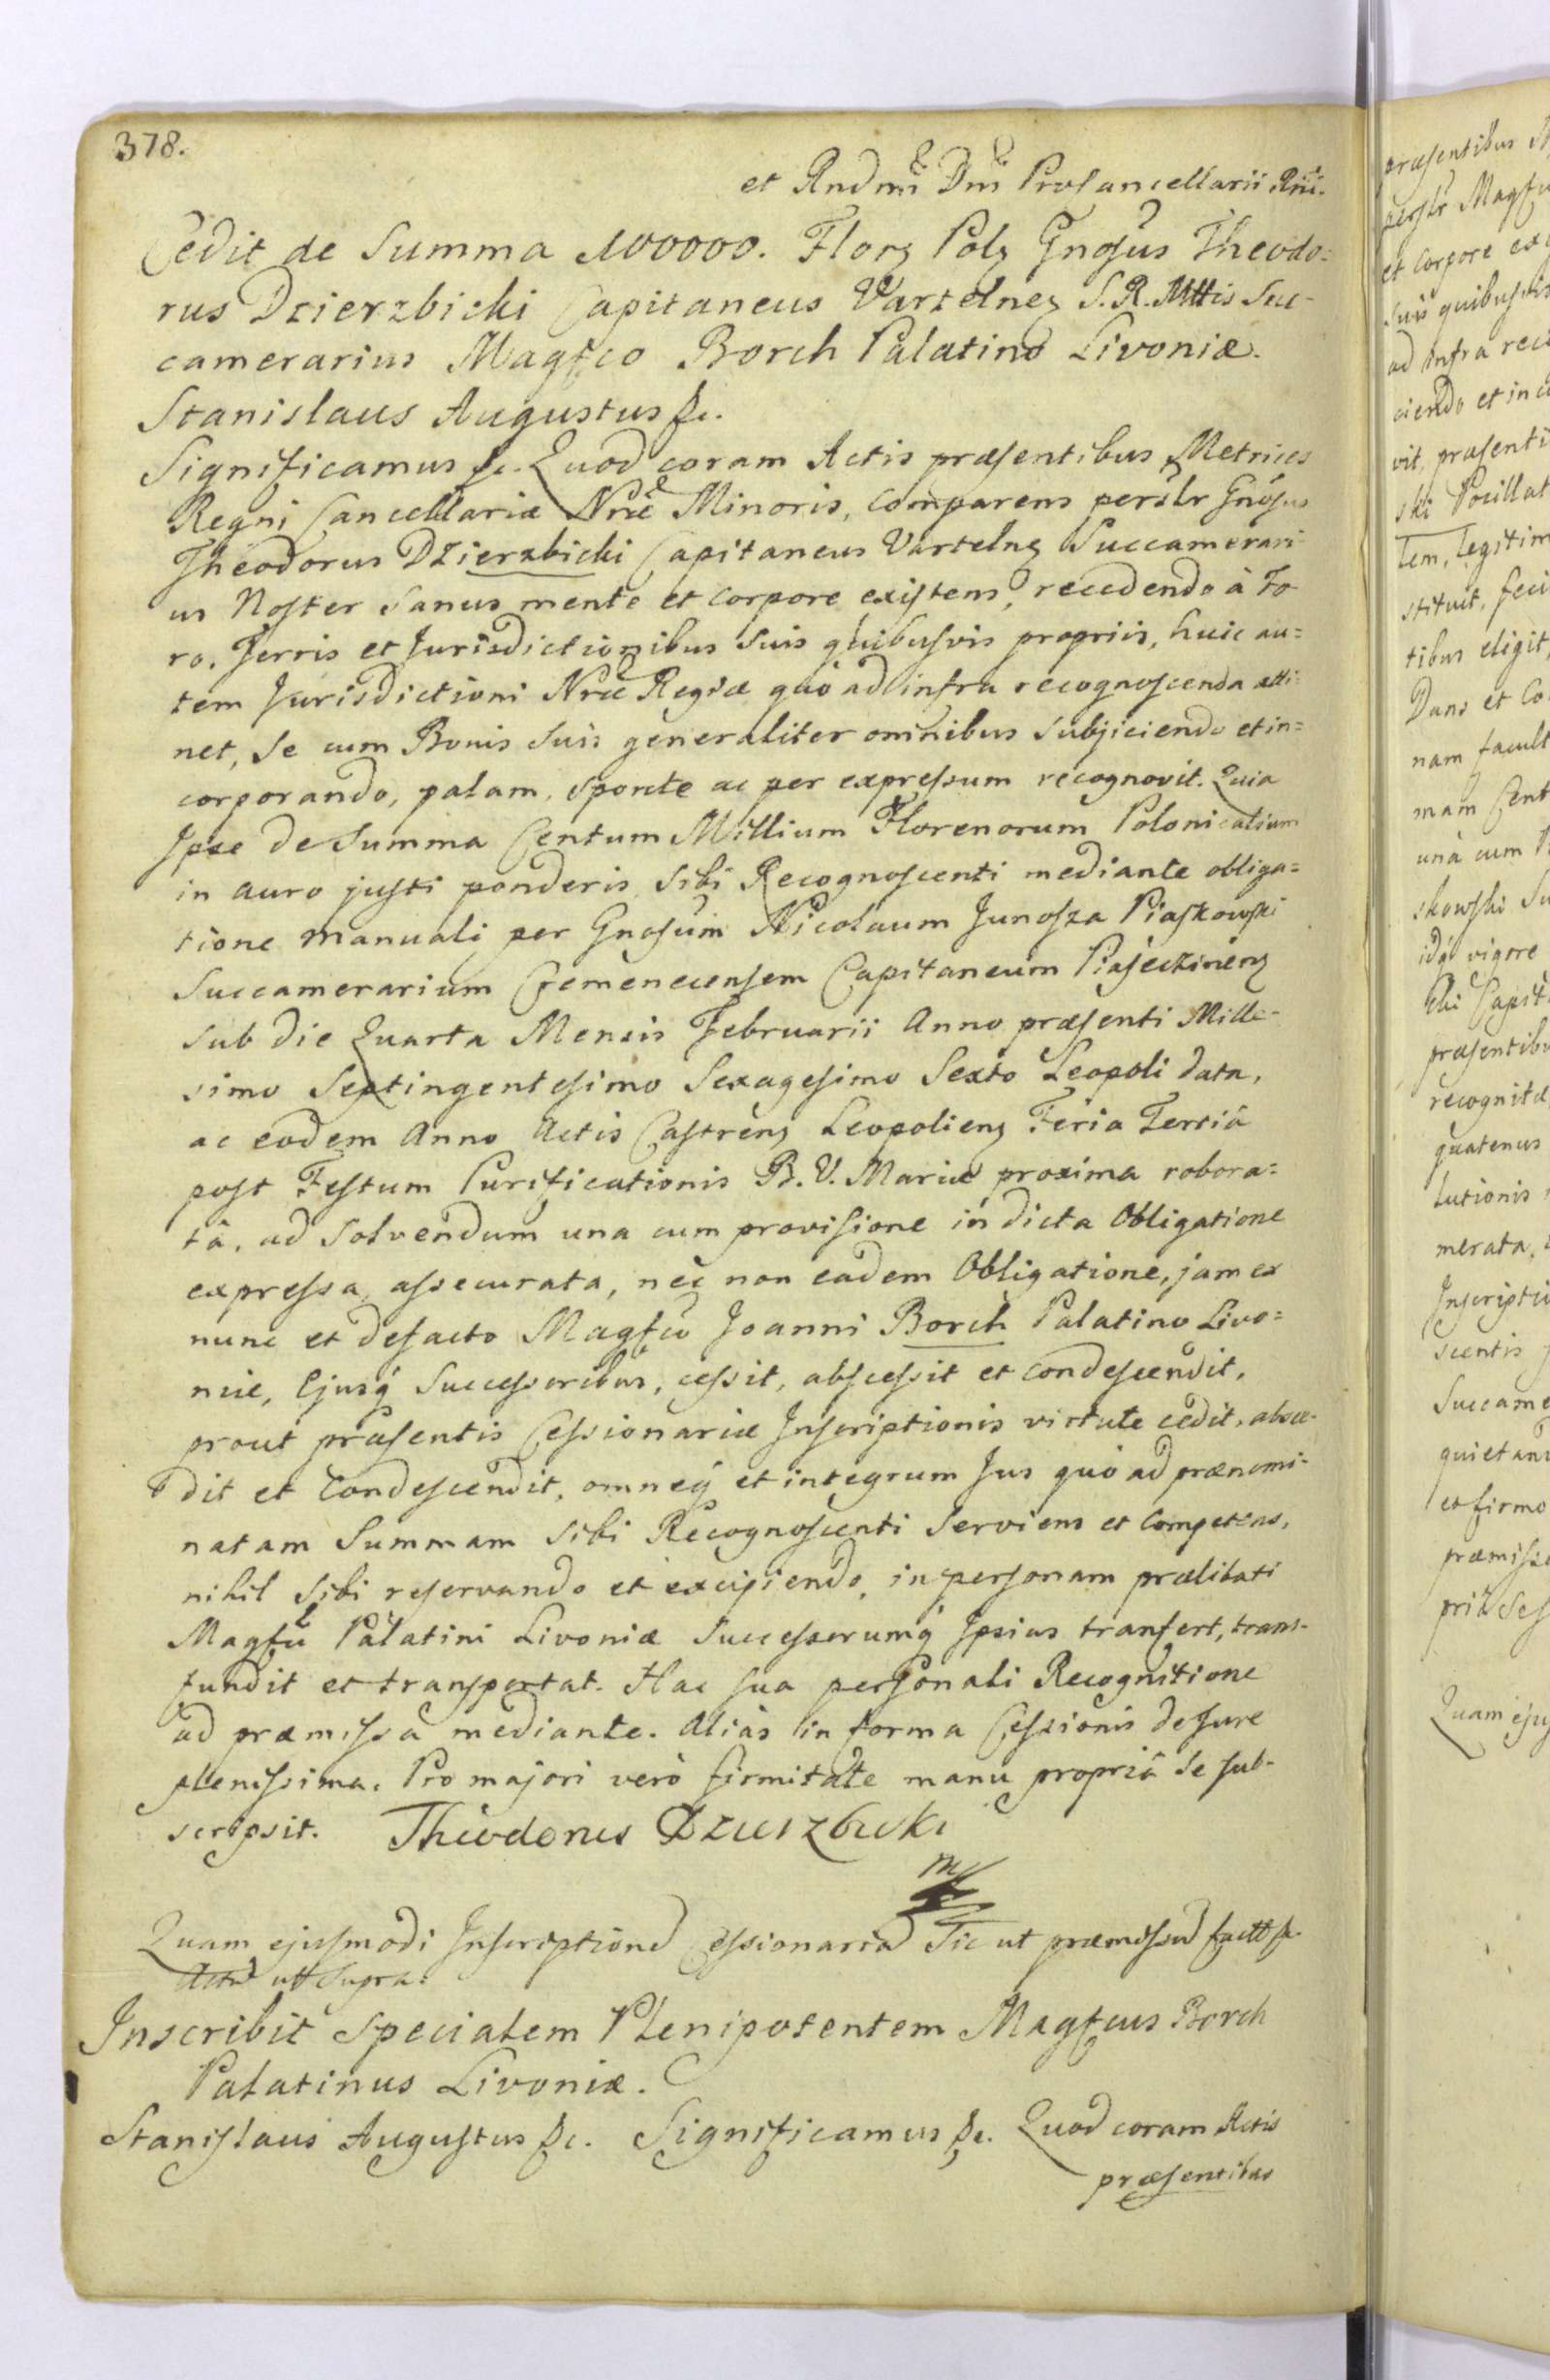 378.
et Rndmi Dni Procancellarii Rni.
Cedit de Summa 100000. Florz Polz Gnosus Theodo=
rus Dzierzbicki Capitaneus Vartelnez S. R. Mttis Suc-
camerarius Magfco Borch Palatino Livoniæ.
Stanislaus Augustus &c.
Significamus &c. Quod coram Actis præsentibus Metrices
Regni Cancellariæ Nræ Minoris, comparens persлr Gnosus
Theodorus Dzierzbicki Capitaneus Vartelnz Succamerari-
us Noster sanus mente et corpore existens, recedendo à Fo
ro, Terris et Jurisdictionibus suis quibusvis propriis, huic au=
tem Jurisdictioni Nræ Regiæ quò ad infra recognoscenda atti-
net, se cum Bonis suis generaliter omnibus subjiciendo et in=
corporando, palam, sponte ac per expressum recognovit. Quia
Ipse de Summa Centum Millium Florenorum Polonicalium
in auro justi ponderis sibi Recognoscenti mediante obliga=
tione manuali per Gnosum Nicolaum Junosza Piaskowski
Succamerarium Cremenecensem Capitaneum Piaseczinenz
sub die Quarta Mensis Februarii Anno præsenti Mille-
simo Septingentesimo Sexagesimo Sexto Leopoli data,
ac eodem Anno Actis Castrenz Leopolienz Feria Tertiâ
post Festum Purificationis B. V. Mariæ proxima robora=
tâ, ad solvendum una cum provisione in dicta Obligatione
expressa, assecurata, nec non eadem Obligatione, jam ex
nunc et de facto Magfco Joanni Borch Palatino Livo=
niæ, Ejusq́ Successoribus, cessit, abscessit et condescendit,
prout præsentis Cessionariæ Inscriptionis virtute cedit, absce-
dit et condescendit, omneq́ et integrum Jus quò ad prænomi-
natam Summam sibi Recognoscenti serviens et competens,
nihil sibi reservando et excipiendo, in personam prælibati
Magfci Palatini Livoniæ successorumq́ Ipsius tranfert, trans-
fundit et transportat. Hac sua personali Recognitione
ad præmissa mediante. Aliàs in forma Cessionis de Jure
plenissima. Pro majori verò firmitate manu propriâ se sub-
scripsit. Theodorus Dzierzbicki
mp
Quam ejusmodi Inscriptione Cessionaria Sic ut præmissu factt &c.
Actu utt supra.
Inscribit Specialem Plenipotentem Magfcus Borch
Palatinus Livoniæ.
Stanislaus Augustus &c. Significamus &c. Quod coram Actis
præsentibus
præsentibus
Magfu
et corpore
suis quibusvis
ad infra
ciendo et in
vit, præsenti
ski
tem, legitim
stituit, feci
tibus eligit,
Dans et Co
nam facult
mam Cent
unà cum
skowski Su
idq́ vigore
præsentibu
recognitæ
quatenus
lutionis
merata,
Inscriptio
scentis
Succame
quietan
et firmo
præmissa
priâ
Quam ejus